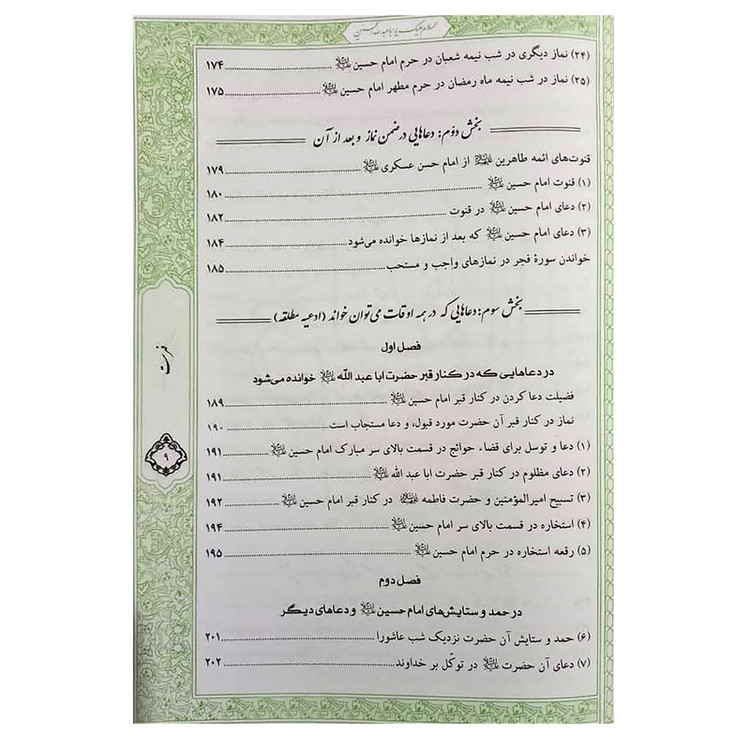 السلام علیک یا اباعبدالله الحسین
(۲۴) نماز دیگری در شب نیمه شعبان در حرم امام حسین علیه‌السلام ........ ۱۷۴
(۲۵) نماز در شب نیمه ماه رمضان در حرم مطهر امام حسین علیه‌السلام ........ ۱۷۵
بخش دوّم: دعاهایی در ضمن نماز و بعد از آن
قنوت‌های ائمه طاهرین علیهم‌السلام از امام حسن عسکری علیه‌السلام ........ ۱۷۹
(۱) قنوت امام حسین علیه‌السلام ........ ۱۸۰
(۲) دعای امام حسین علیه‌السلام در قنوت ........ ۱۸۲
(۳) دعای امام حسین علیه‌السلام که بعد از نمازها خوانده می‌شود ........ ۱۸۴
خواندن سورهٔ فجر در نمازهای واجب و مستحب ........ ۱۸۵
بخش سوم: دعاهایی که در همه اوقات می‌توان خواند (ادعیه مطلقه)
فصل اول
در دعاهایی که در کنار قبر حضرت ابا عبد الله علیه‌السلام خوانده می‌شود
فضیلت دعا کردن در کنار قبر امام حسین علیه‌السلام ........ ۱۸۹
نماز در کنار قبر آن حضرت مورد قبول، و دعا مستجاب است ........ ۱۹۰
(۱) دعا و توسل برای قضاء حوائج در قسمت بالای سر مبارک امام حسین علیه‌السلام ........ ۱۹۱
(۲) دعای مظلوم در کنار قبر حضرت ابا عبد الله علیه‌السلام ........ ۱۹۱
(۳) تسبیح امیرالمؤمنین و حضرت فاطمه علیهماالسلام در کنار قبر امام حسین علیه‌السلام ........ ۱۹۲
(۴) استخاره در قسمت بالای سر امام حسین علیه‌السلام ........ ۱۹۴
(۵) رقعه استخاره در حرم امام حسین علیه‌السلام ........ ۱۹۵
فصل دوم
در حمد و ستایش‌های امام حسین علیه‌السلام و دعاهای دیگر
(۶) حمد و ستایش آن حضرت نزدیک شب عاشورا ........ ۲۰۱
(۷) دعای آن حضرت علیه‌السلام در توکّل بر خداوند ........ ۲۰۲
فهرست
۹